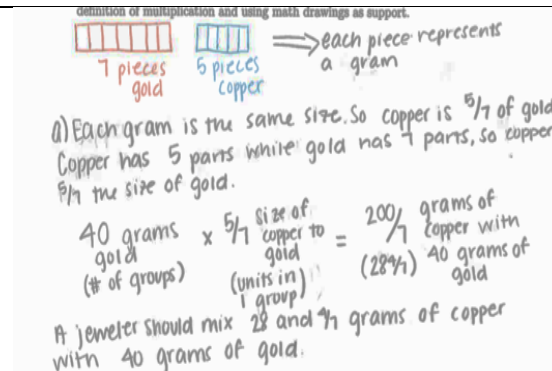 definition of multiplication and using math drawings as support.
7 pieces gold
5 pieces copper
⇒ each piece represents a gram
a) Each gram is the same size. So copper is 5/7 of gold
Copper has 5 parts while gold has 7 parts, so copper
5/7 the size of gold.
40 grams gold (# of groups) × 5/7 size of copper to gold (units in 1 group) = 200/7 grams of copper with 40 grams of gold (28 4/7)
A jeweler should mix 28 and 4/7 grams of copper
with 40 grams of gold.